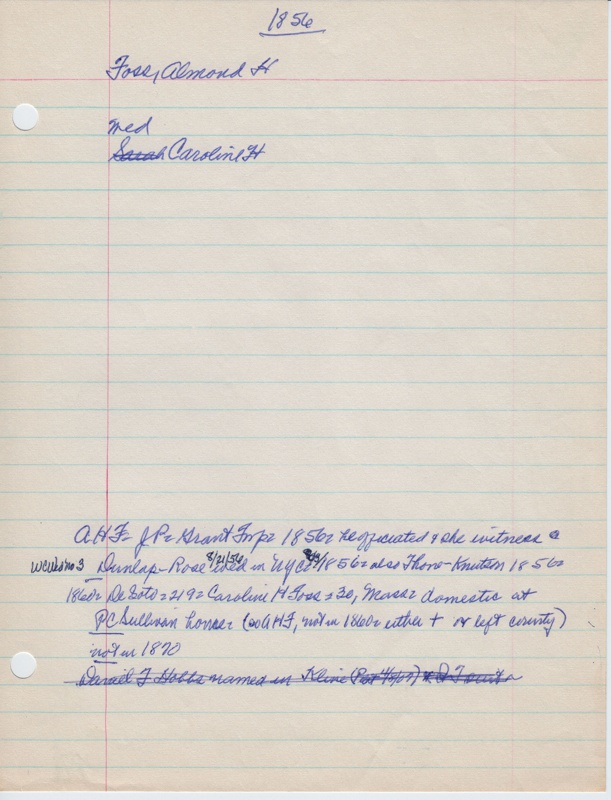 1856
Foss, Almond H
med
Sarah Caroline H
AHF = JP = Grant Twp = 1856 = he officiated & she witness @
WCWed no 3 Dunlap-Rose 8/21/56 wed in = 1856 = also Thow-Knutson 1856 =
1860 = DeSoto = 219 = Caroline H Foss = 30, Mass = domestic at
PC Sullivan house = (so AHF, not in 1860 = either + or left county)
not in 1870
Daniel T Hobbs named in Kline